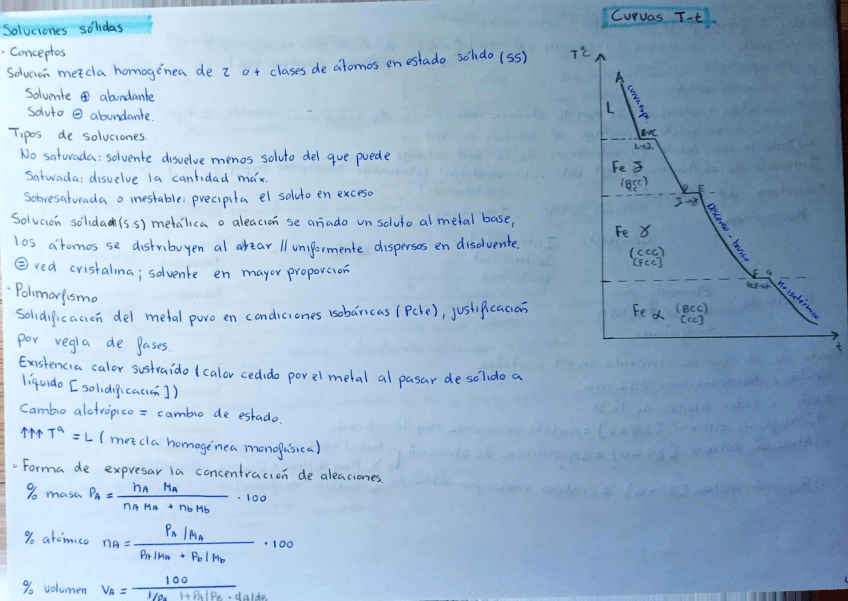 Soluciones sólidas
· Conceptos
Solución mezcla homogénea de 2 o + clases de átomos en estado sólido (SS)
Solvente ⊕ abundante
Soluto ⊖ abundante.
Tipos de soluciones.
No saturada: solvente disuelve menos soluto del que puede
Saturada: disuelve la cantidad máx.
Sobresaturada o inestable: precipita el soluto en exceso
Solución sólida (s.s) metálica o aleación se añado un soluto al metal base,
los átomos se distribuyen al atzar // uniformemente dispersos en disolvente.
⊜ red cristalina; solvente en mayor proporción
· Polimorfismo
Solidificación del metal puro en condiciones isobáricas (Pcte), justificación
por regla de fases.
Existencia calor sustraído (calor cedido por el metal al pasar de sólido a
líquido [solidificación])
Cambio alotrópico = cambio de estado.
↑↑↑ Tª = L (mezcla homogénea monofásica)
· Forma de expresar la concentración de aleaciones.
% masa PA = nA MA / nA MA + nb Mb · 100
% atómico nA = PA/MA / PA/MA + Pb/Mb · 100
% volumen VA = 100
Curvas T-t
TºC
A
L
Fe δ
(BCC)
D E
Fe γ
(CCC)
[FCC]
F G
Fe α (BCC)
[CC]
t